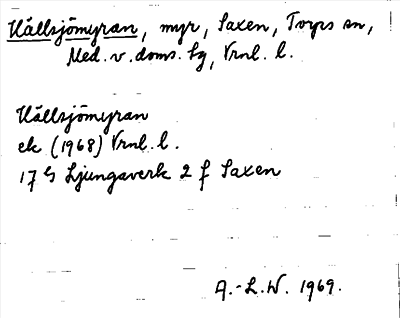 Källsjömyran, myr, Saxen, Torps sn,
Med. v. doms. hg, Vrnl. l.
Källsjömyran
ek (1968) Vrnl. l.
17 G Ljungaverk 2 f Saxen
A.-L.W. 1969.